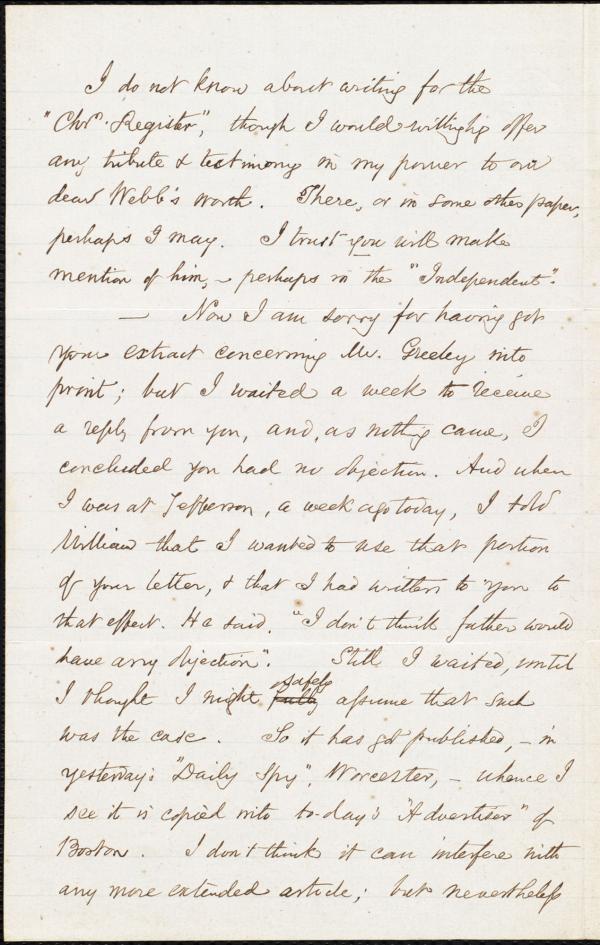 I do not know about writing for the
"Chrn. Register", though I would willingly offer
any tribute & testimony in my power to our
dear Webb's worth. There, or in some other paper,
perhaps I may. I trust you will make
mention of him, – perhaps in the "Independent".
— Now I am sorry for having got
your extract concerning Mr. Greeley into
print; but I waited a week to receive
a reply from you, and, as nothing came, I
concluded you had no objection. And when
I was at Jefferson, a week ago today, I told
William that I wanted to use that portion
of your letter, & that I had written to you to
that effect. He said, "I don't think father would
have any objection". Still I waited, until
safely
I thought I might fully assume that such
was the case. So it has got published, – in
yesterday's "Daily Spy", Worcester, – whence I
see it is copied into to-day's "Advertiser" of
Boston. I don't think it can interfere with
any more extended article; but nevertheless